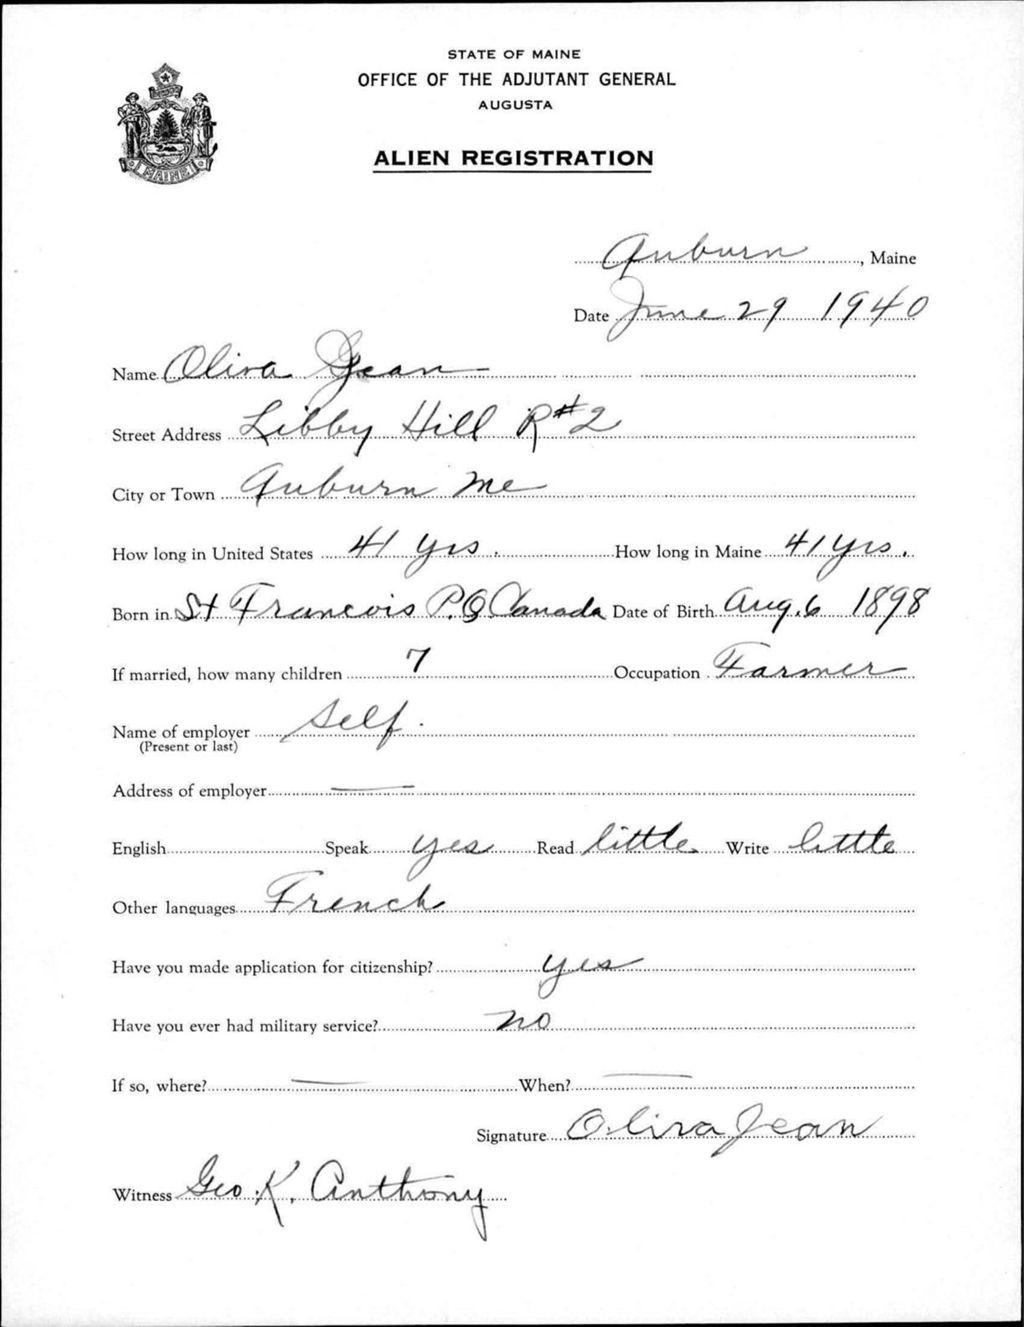 STATE OF MAINE
OFFICE OF THE ADJUTANT GENERAL
AUGUSTA
ALIEN REGISTRATION
MAINE
Auburn, Maine
Date June 29 1940
Name Oliva Jean
Street Address Libby Hill R#2
City or Town Auburn Me
How long in United States 41 yrs. How long in Maine 41 yrs.
Born in St Francois P.Q Canada Date of Birth Aug. 6 1898
If married, how many children 7 Occupation Farmer
Name of employer Self.
(Present or last)
Address of employer —
English Speak yes Read little Write little
Other languages French
Have you made application for citizenship? yes
Have you ever had military service? no
If so, where? — When? —
Signature Oliva Jean
Witness Geo K. Anthony